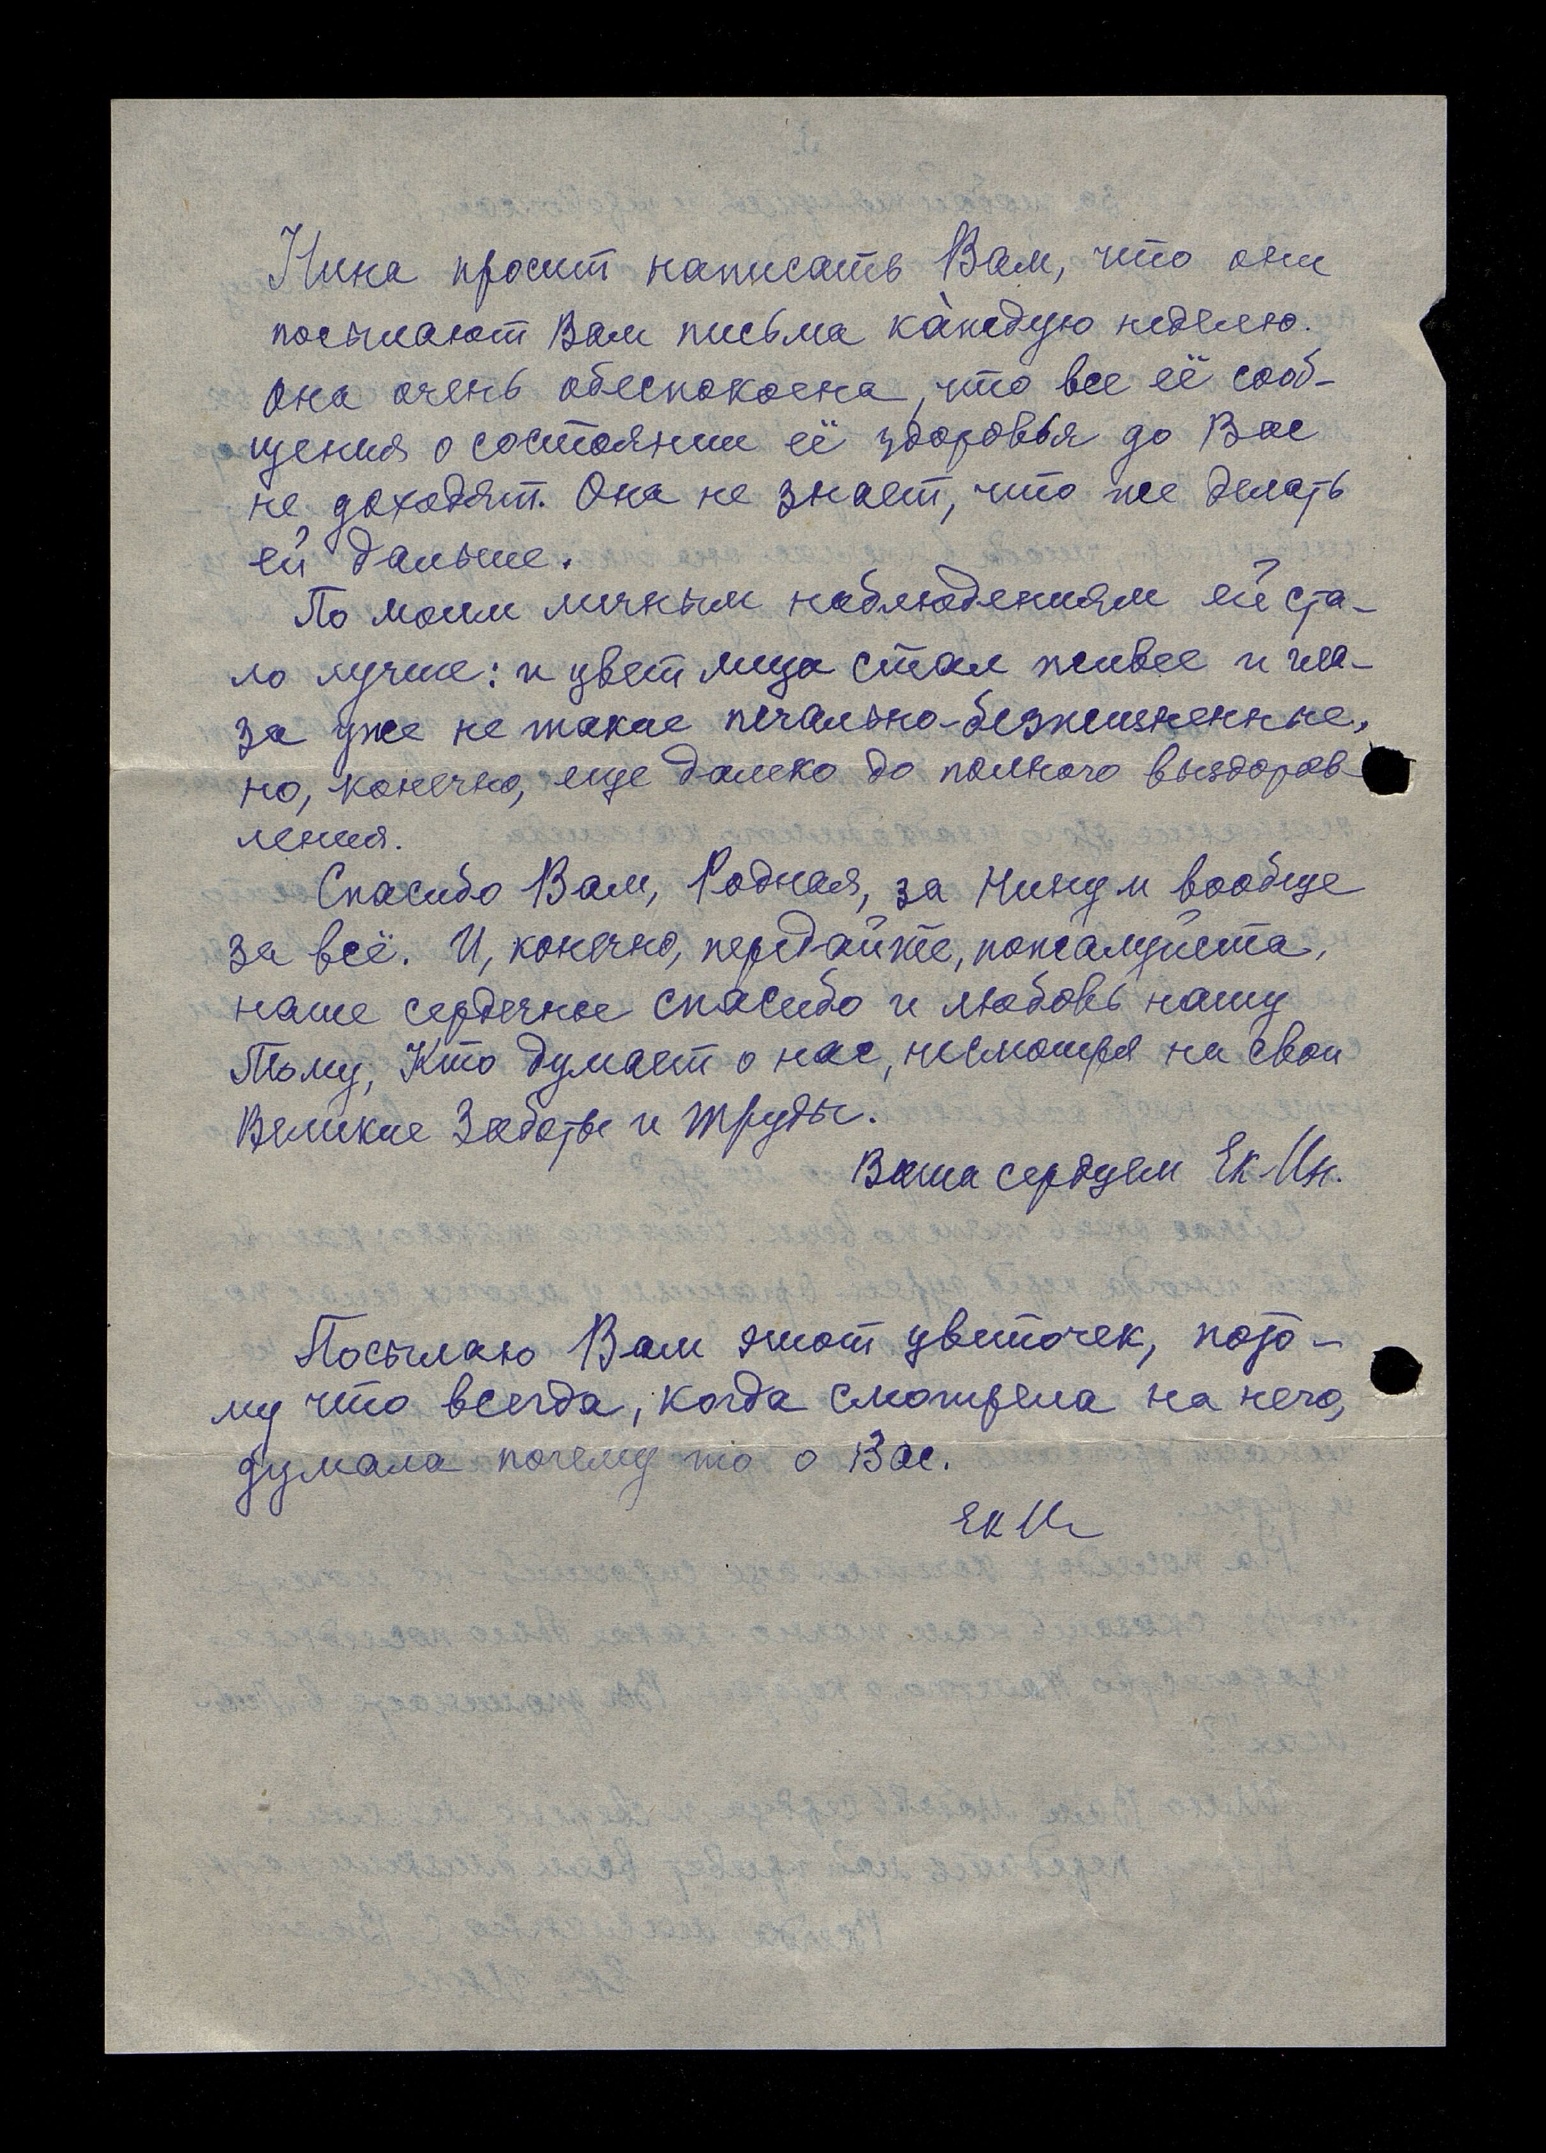 Нина просит написать Вам, что они
посылают Вам письма ка̀ждую неделю.
Она очень обеспокоена, что все её сооб-
щения о состоянии её здоровья до Вас
не доходят. Она не знает, что же делать
ей дальше.
По моим личным наблюдениям ей ста-
ло лучше: и цвет лица стал живее и гла-
за уже не такие печально-безжизненные,
но, конечно, еще далеко до полного выздоров-
ления.
Спасибо Вам, Родная, за Нину и вообще
за всё. И, конечно, передайте, пожалуйста,
наше сердечное спасибо и любовь нашу
Тому, Кто думает о нас, несмотря на свои
Великие Заботы и Труды.
Ваша сердцем Ек Ин.
Посылаю Вам этот цветочек, пото-
му что всегда, когда смотрела на него,
думала почему то о Вас.
Ек Ин